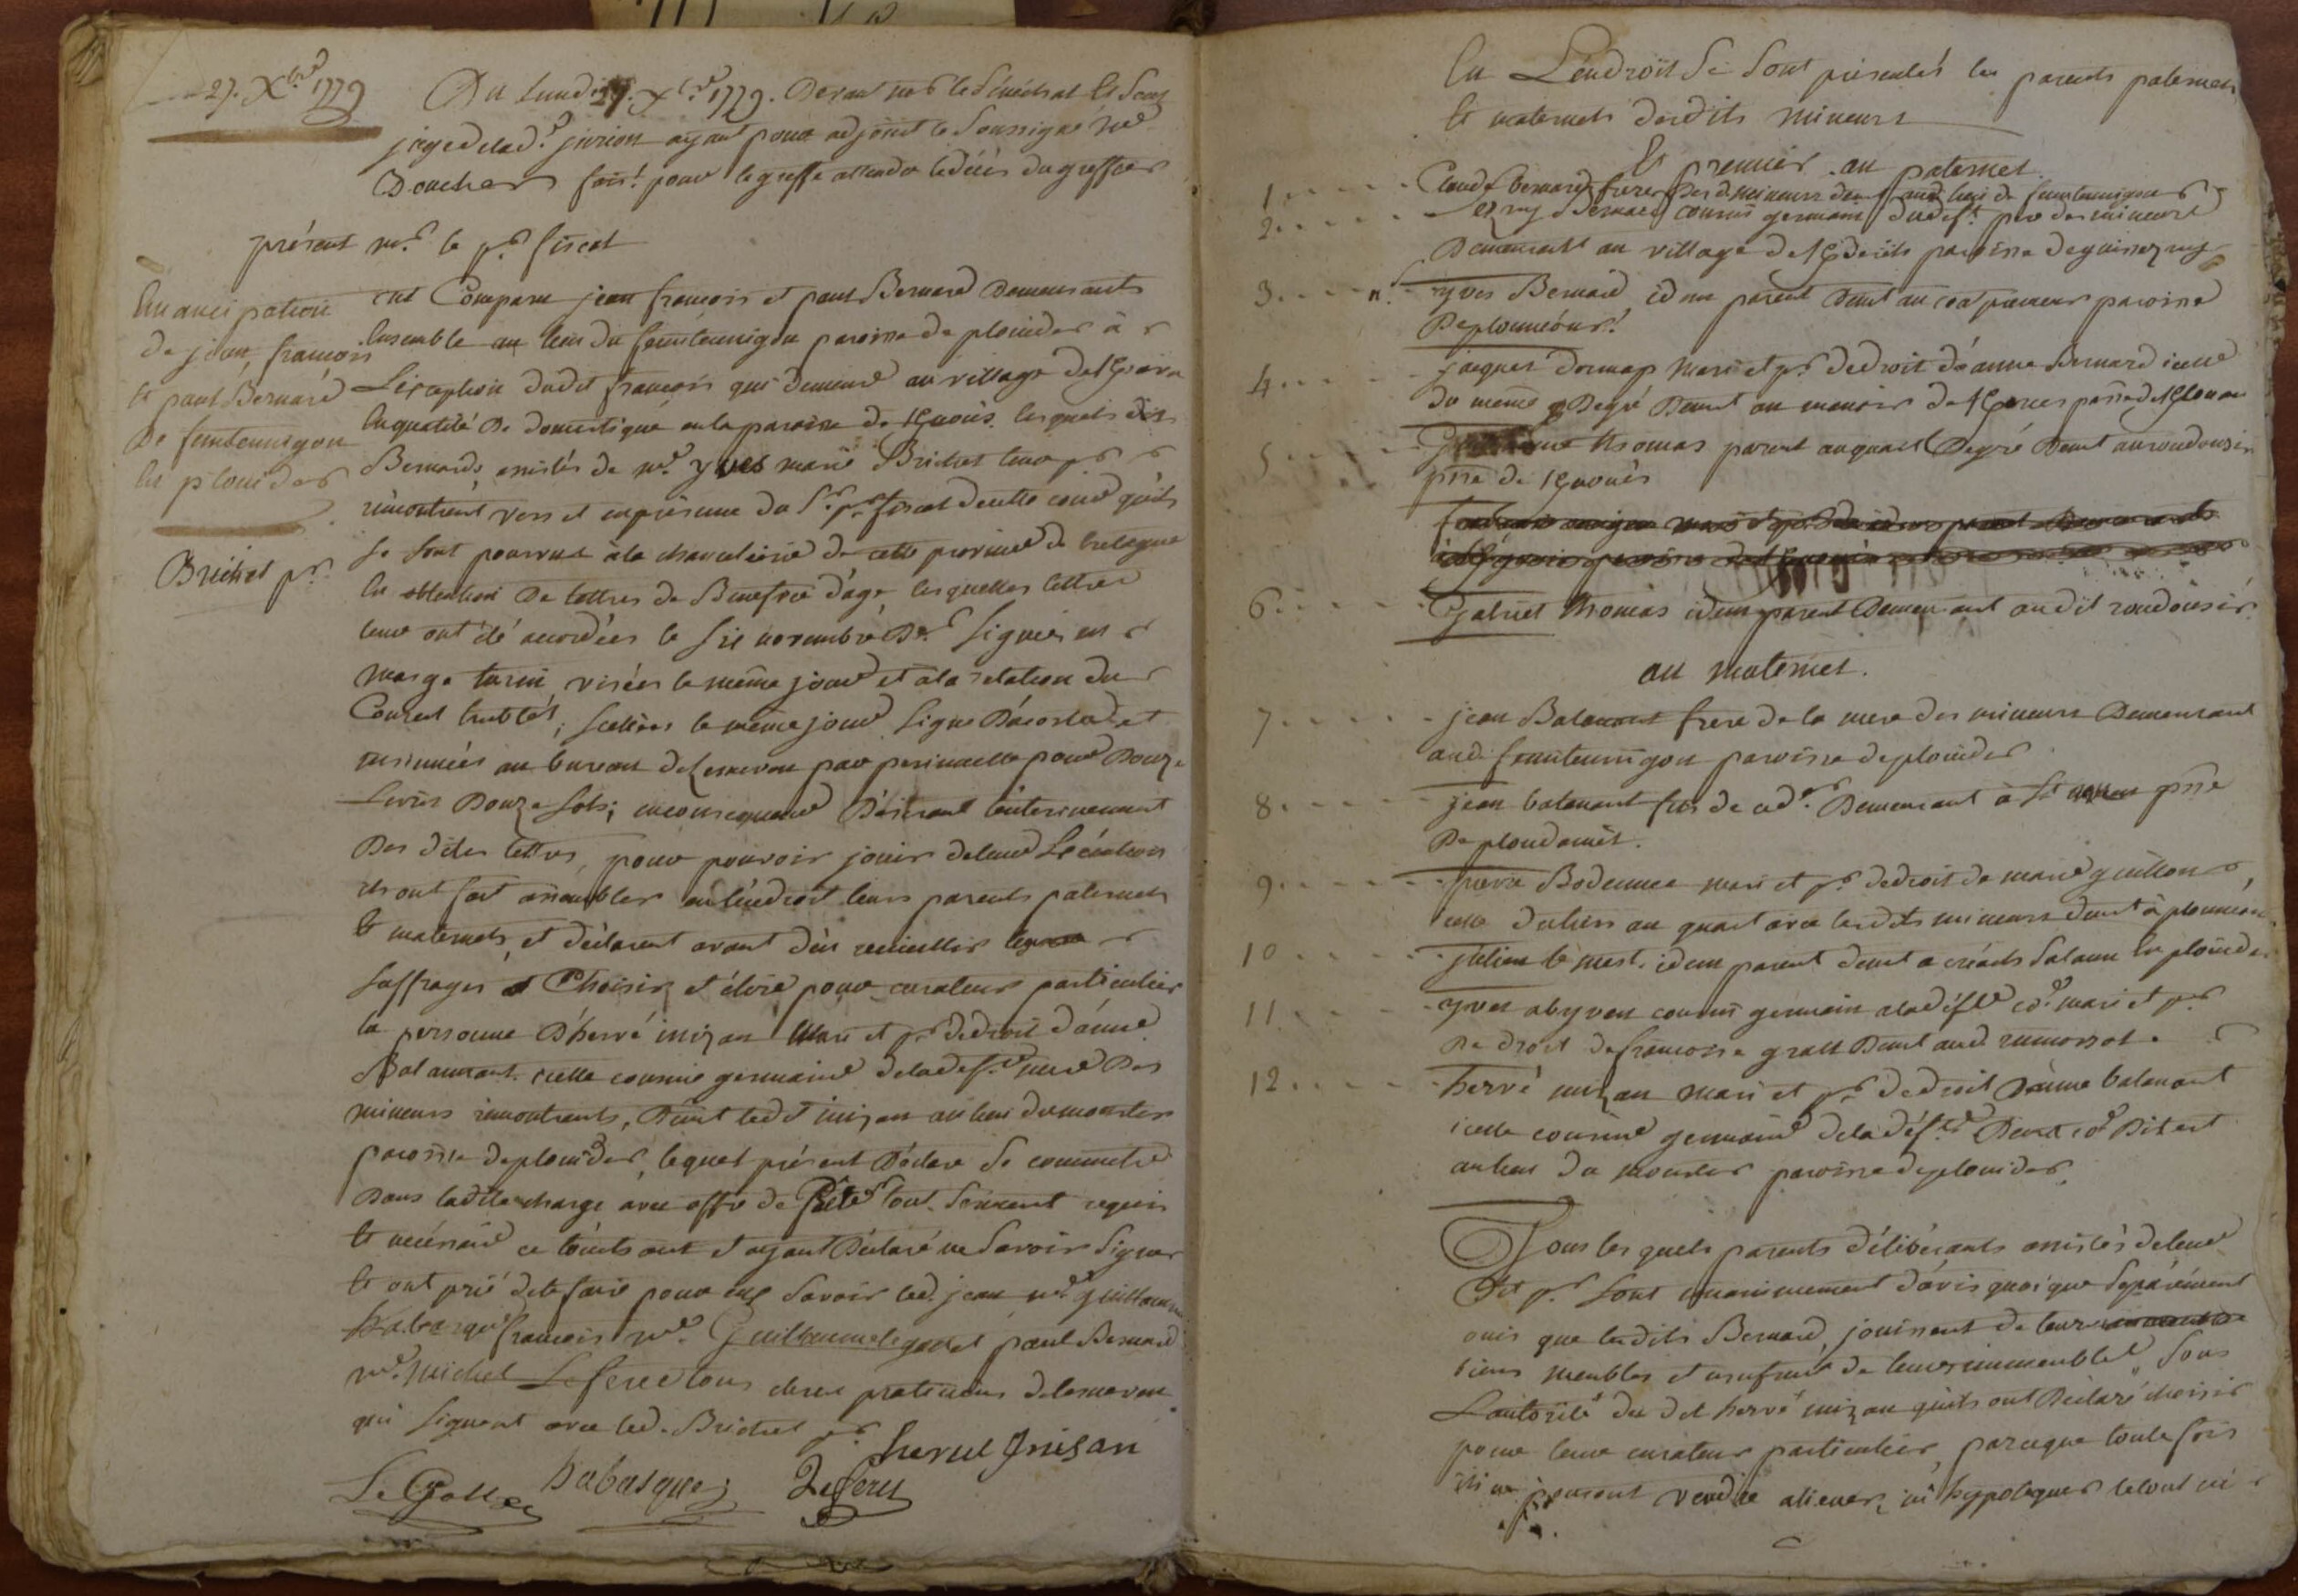 27. Xbre 1779
Emancipation
de jean, françois
et paul Bernard
de feunteunigou
en plouider
Brichet pr.
Du Lundi 27. Xbre 1779. Devant nous le Sénéchal et Seul
juge de lad. jurion ayant pour adjoint le Soussigné me
Boucher pour le greffe attendu le décès du greffier
présent mr. le pr. fiscal
ont Comparu jean françois et paul Bernard Demeurants
Ensemble au lieu du feunteunigou paroisse de plouider à
L'éxception dudit françois qui demeure au village de
En qualité De domestique en la paroisse de lesquels dits
Bernards, assistés de me. yves marie Brichet leur pr
rémontrent vers et en présence du Sr. pr. fiscal de cette cour qu'ils
Se Sont pourvus à la chancelerie de cette province de bretagne
En obtention De lettres de Benefice d'âge, lesquelles lettres
leur ont été accordées le Six novembre Der. Signées en
marge turin, visées le même jour et à la relation du
Conseil ; Scellées le même jour Signé et
insinuées au bureau de Lesneven par pour Douze
Livres Douze Sols; en consequence Désirant l'enterinement
Des dites lettres, pour pouvoir jouir de leur
ils ont fait assembler en l'endroit leurs parents paternels
Et maternels, et déclarent avant d'en recueillir les
Suffrages Choisir et élire pour curateur particulier
la personne D'hervé inizan Mari et pr de droit d'anne
Balannant. icelle cousine germaine de la deffte. mere Des
mineurs rémontrants, Demt led. inizan au lieu du mouster
paroisse de plouider, lequel présent Déclare Se commettre
Dans ladite charge avec offre de Prêter tout Serment requis
Et nécessaire et ayant Déclaré ne Savoir Signer
Et ont prié de le faire pour eux Savoir led. jean me guillaume
habasque françois me. Guillaume le gall et paul Bernard
me. michel Le feree tous clercs praticiens de lesneven
qui Signent avec led. Brichet pr.
hervé Inisan
Le Gall habasque Leferec
En L'endroit Se Sont présentés les parents paternels
Et maternels desdits mineurs
Et premier au paternel.
1. Claude bernard frere des mineurs demt aud. lieu de feunteunigou
2. et Bernard cousin germain du deft. pere des mineurs
Demeurant au village de paroisse de guinezvez
3. yves Bernard idem parent Demt au paroisse
De plounéour.
4. jacques mari et pr de droit d'anne Bernard icelle
du même Degré Demt au manoir de
5. thomas parent au quart Degré Demt au roudousir
psse de
6. Gabriel thomas idem parent Demeurant audit roudousir.
au maternel.
7. jean Balanant frere de la mere des mineurs Demeurant
aud. feunteunigou paroisse de plouider
8. jean balanant fils de Demeurant à St psse
De ploudaniel.
9. Bodennec mari et pr de droit de marie guillou
icelle au quart avec lesdits mineurs demt à plouneour
10. le mest. idem parent demt a Salaun En plouider
11. yves abyven cousin germain à la défte mari et pr
De droit de françoise grall Demt aud.
12. hervé inizan mari et pr de droit D'anne balanant
icelle cousine germaine de la défte. Demt
au lieu du mouster paroisse de plouider.
Tous lesquels parents délibérants assistés de leur
Dit pr. Sont unanimement d'avis quoique Séparément
ouis que lesdits Bernard, jouissent de leurs
biens meubles et usufruit de leurs immeubles, Sous
L'autorité du dit hervé inizan qu'ils ont Déclaré choisir
pour leur curateur particulier, parceque toutefois
ils ne pouront vendre aliener, ni hypotequer